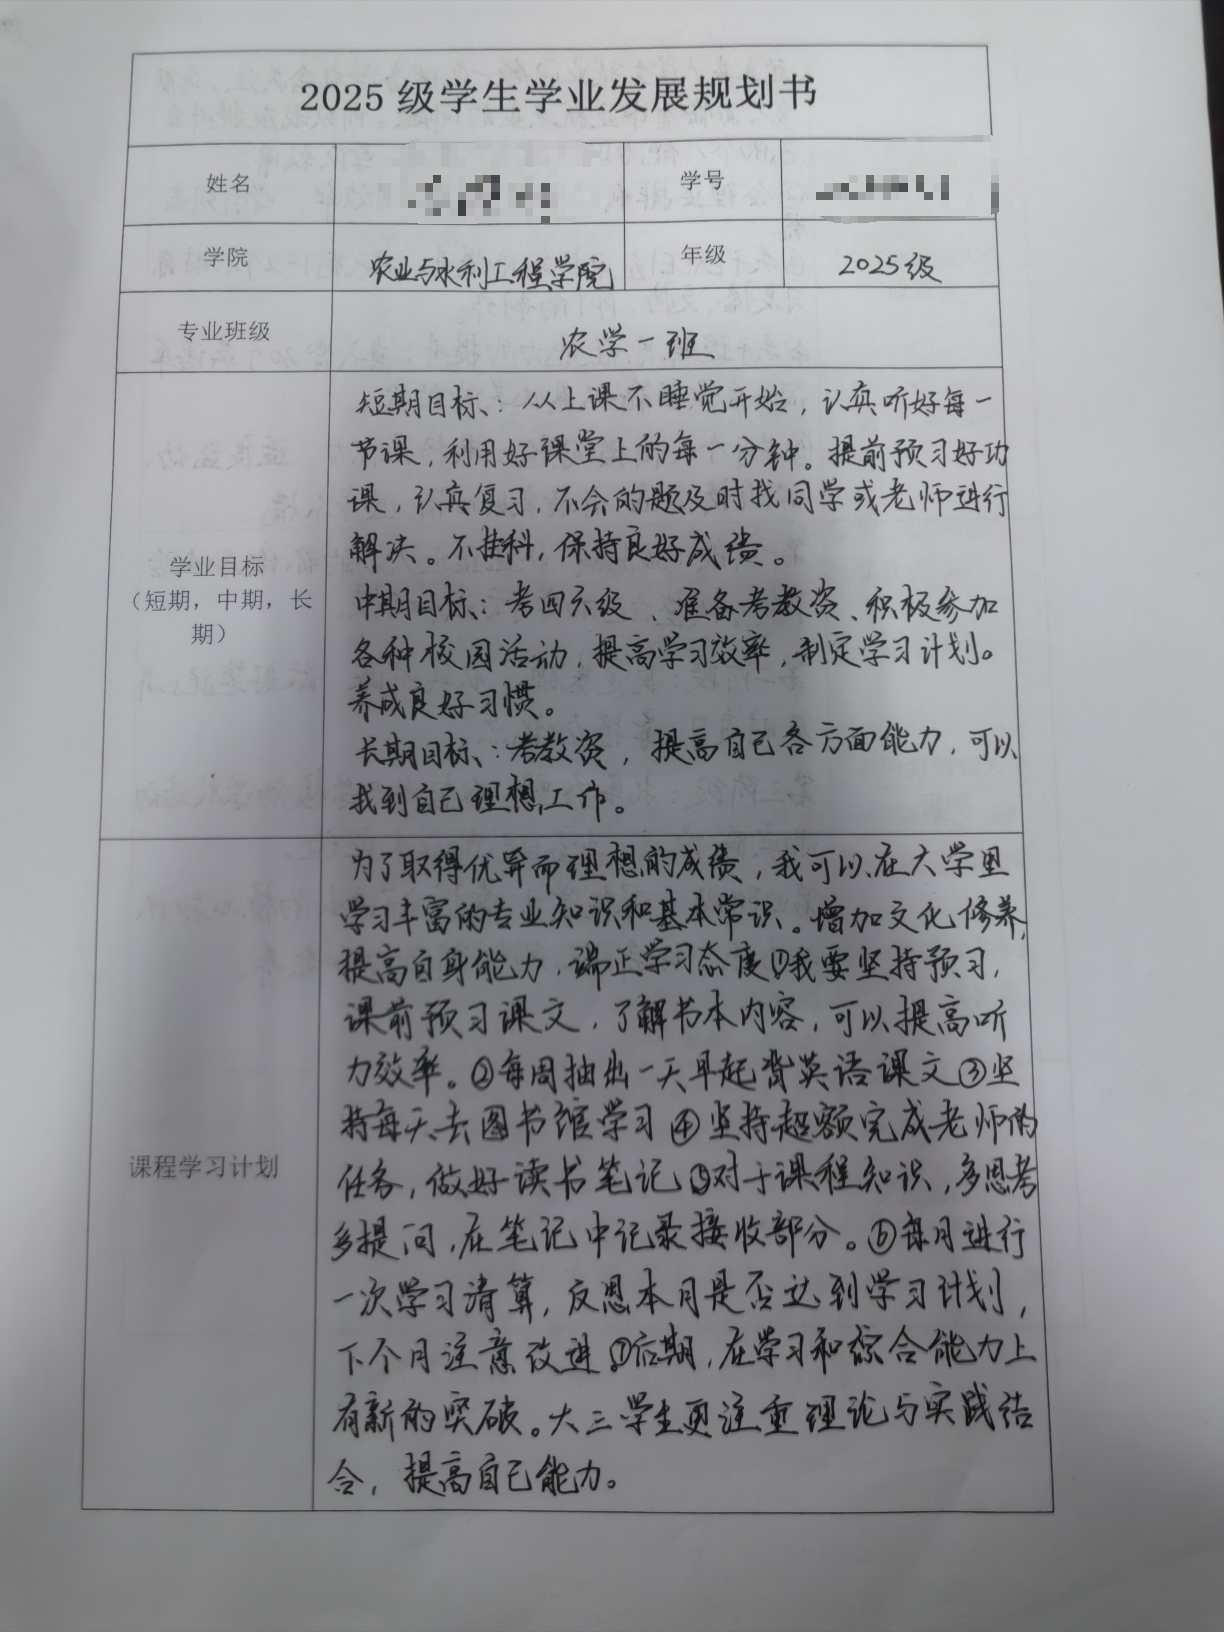 2025 级学生学业发展规划书
姓名
学号
学院 农业与水利工程学院 年级 2025级
专业班级 农学一班
学业目标
（短期，中期，长
期）
短期目标、：从上课不睡觉开始，认真听好每一
节课，利用好课堂上的每一分钟。提前预习好功
课，认真复习，不会的题及时找同学或老师进行
解决。不挂科，保持良好成绩。
中期目标、：考四六级、准备考教资、积极参加
各种校园活动，提高学习效率，制定学习计划。
养成良好习惯。
长期目标、：考教资，提高自己各方面能力，可以
找到自己理想工作。
课程学习计划
为了取得优异而理想的成绩，我可以在大学里
学习丰富的专业知识和基本常识。增加文化修养，
提高自身能力，端正学习态度①我要坚持预习，
课前预习课文，了解书本内容，可以提高听
力效率。②每周抽出一天早起背英语课文③坚
持每天去图书馆学习④坚持超额完成老师的
任务，做好读书笔记⑤对于课程知识，多思考
多提问，在笔记中记录接收部分。⑥每月进行
一次学习清算，反思本月是否达到学习计划，
下个月注意改进。⑦后期，在学习和综合能力上
有新的突破。大三学生更注重理论与实践结
合，提高自己能力。